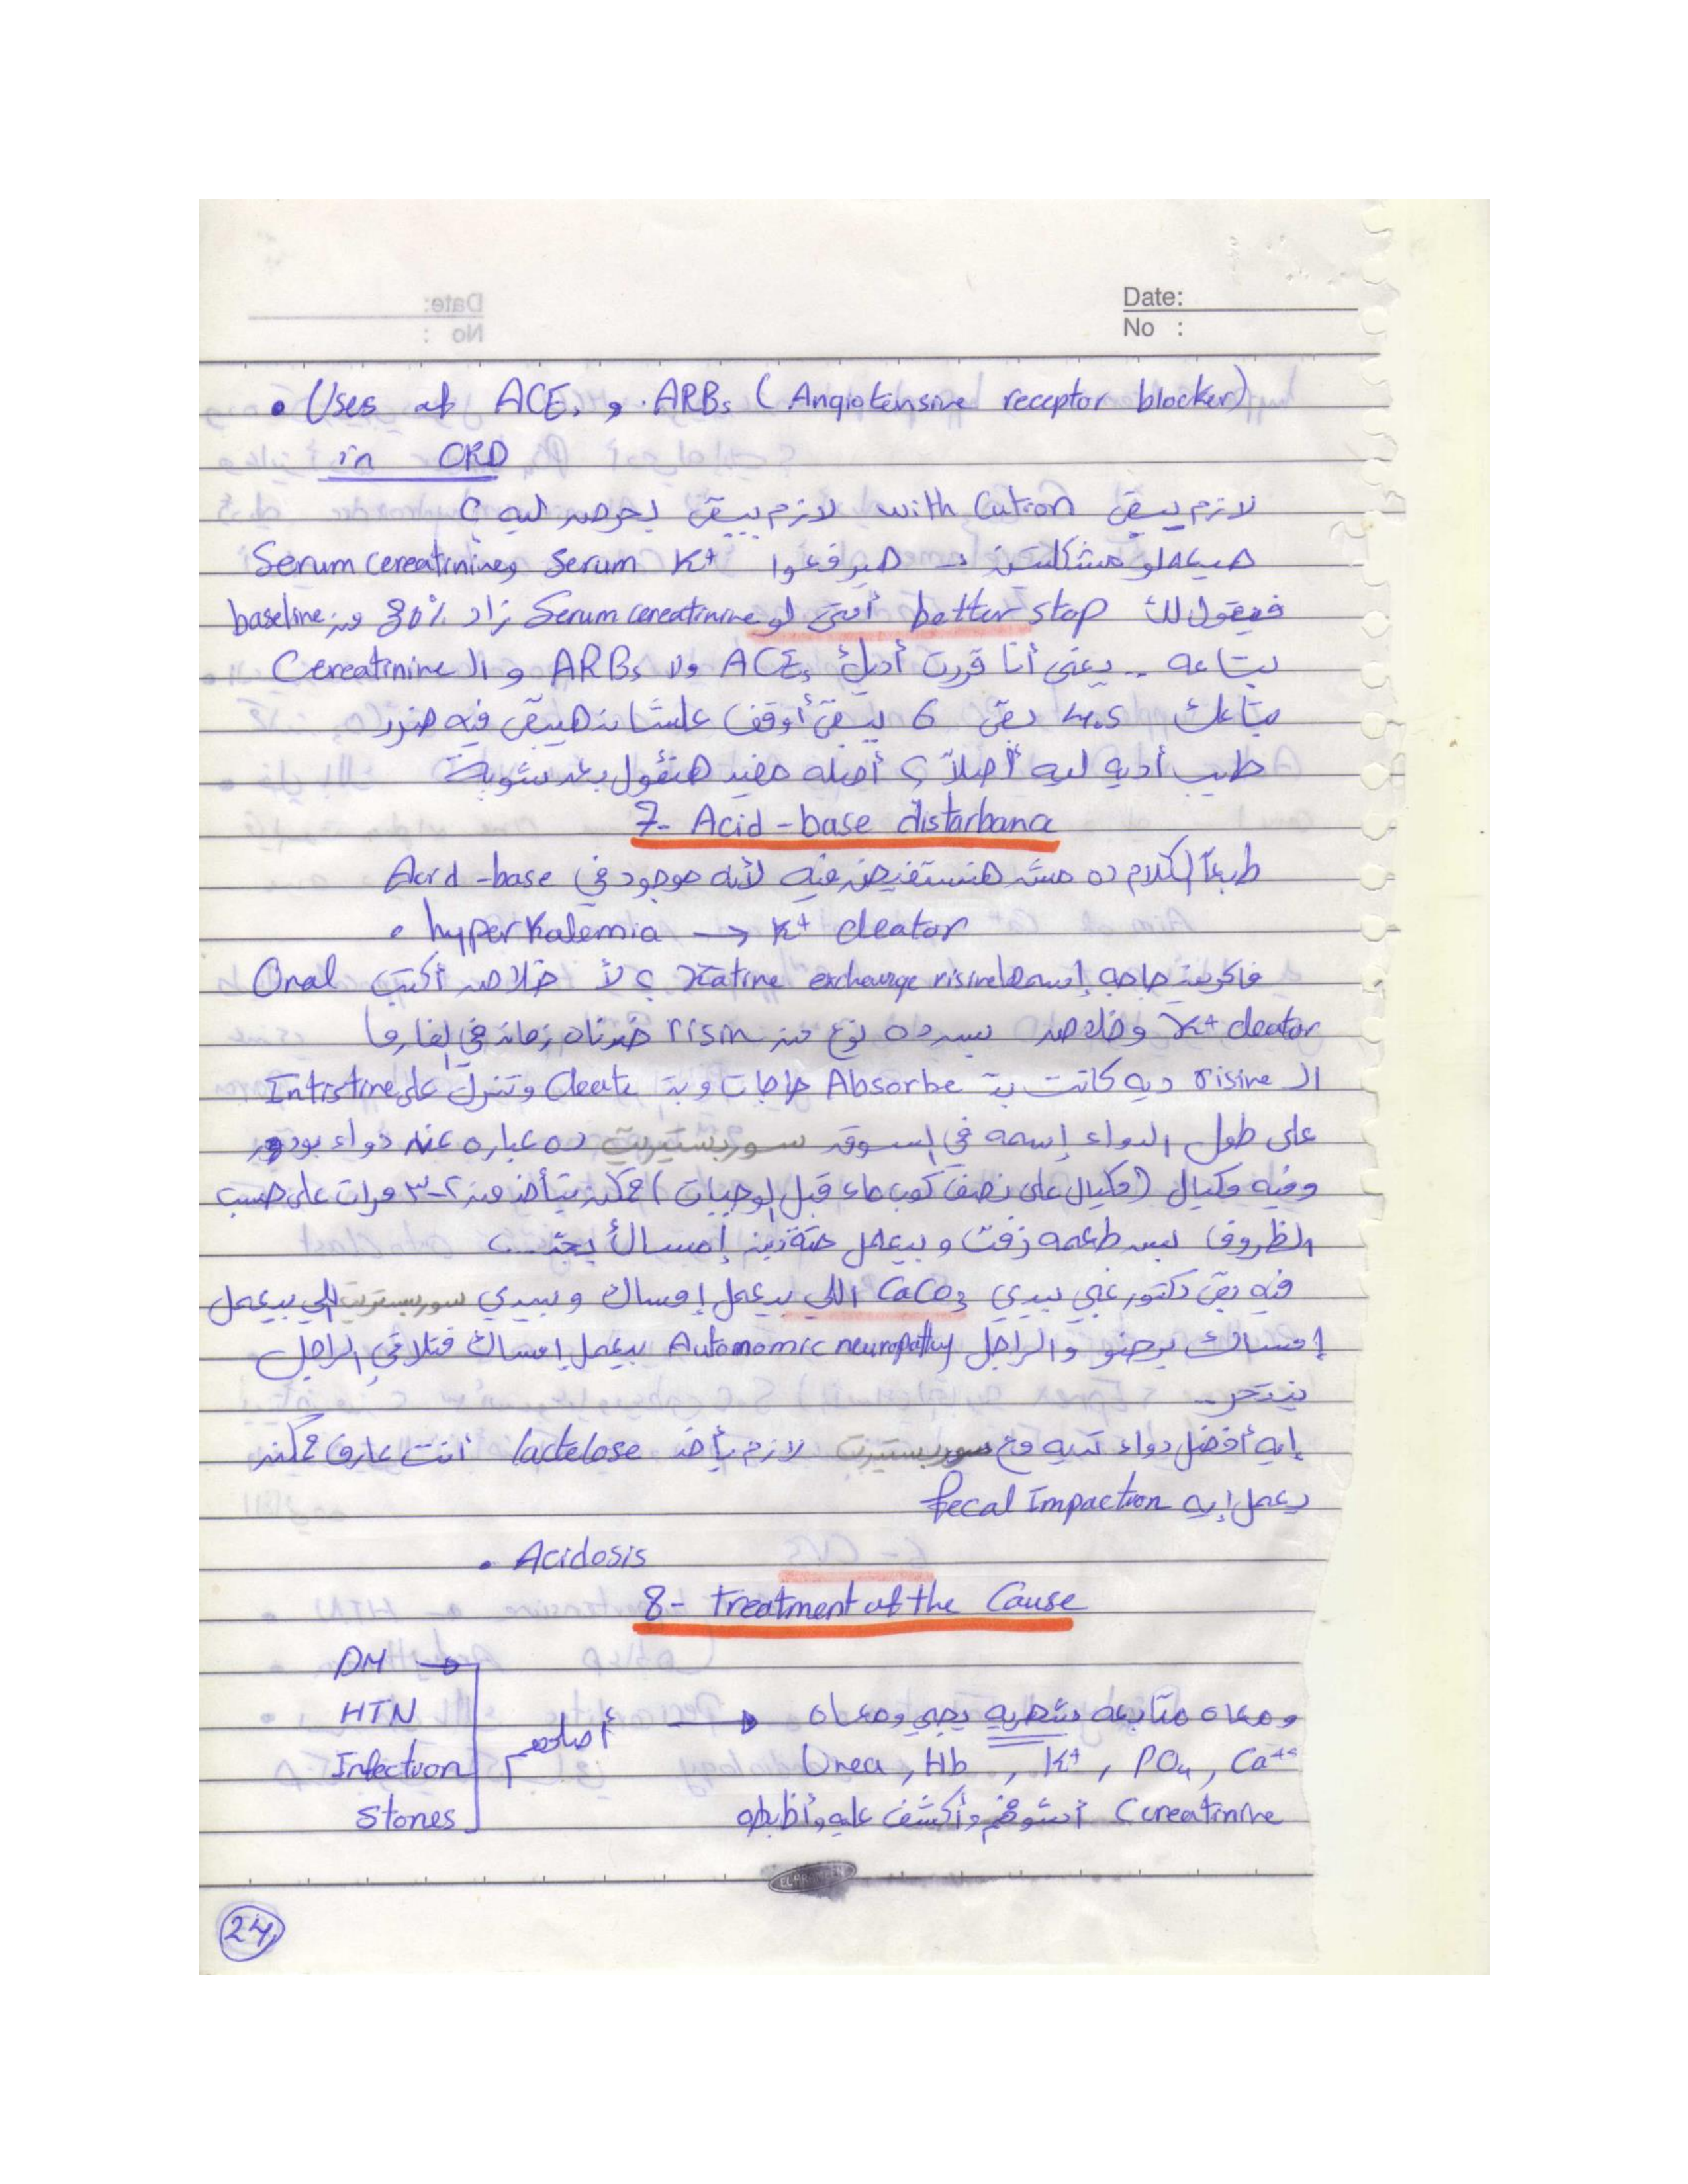 Date:
No :
• Uses of ACEs و ARBs (Angiotensine receptor blocker)
in CRD
لازم يبقى with Cution لازم يبقى بحرص ليه ؟
هيعملو مشكلتين → هيرفعوا Serum K+ و Serum cereatinine
فبيقول لك better stop أمتى لو Serum cereatinine زاد 30% من baseline
بتاعه .. يعني أنا قررت أديك ACEs ولا ARBs و الـ Cereatinine
بتاعك 4.5 بقى 6 يبقى أوقف علشان هيبقى فيه ضرر
طيب أديه ليه أصلاً ؟ أصله مفيد هنقول بعد شوية
7- Acid-base distarbana
طبعاً الكلام ده مش هنستفيض فيه لأنه موجود في Acid-base
• hyperkalemia → K+ cleator
فاكرين حاجه إسمها Katine exchange risine ؟ لأ خلاص أكتب Oral
K+ cleator وخلاص بس ده نوع من risin خدناه زمان في الفارما
الـ risine ديه كانت بتـ Absorbe حاجات و بتـ Cleate وتنزل على Intistine
على طول الدواء إسمه في السوق سوربستيريت ده عباره عن دواء بودر
وفيه مكيال (مكيال على نصف كوب ماء قبل الوجبات) ممكن يتأخد من ٢-٣ مرات على حسب
الظروف بس طعمه زفت و بيعمل حتة إمساك
فيه بقى دكتور غبي بيدي CaCO3 اللي بيعمل إمساك و بيدي سوربستريت اللي بيعمل
إمساك برضو والراجل Autonomic neuropathy بيعمل إمساك فتلاقي الراجل
ينتحر ..
إيه أفضل دواء تديه مع سوربستيريت لازم يأخد lactelose أنت عارف ممكن
يعمل إيه fecal Impaction
• Acidosis
8- treatment of the Cause
DM
HTN
Infection
Stones
أصلحهم → ومعاه متابعه شهريه يجي ومعاه
Urea , Hb , K+ , PO4 , Ca++
Ccreatinine أشوفهم وأكشف عليه وأظبطه
24